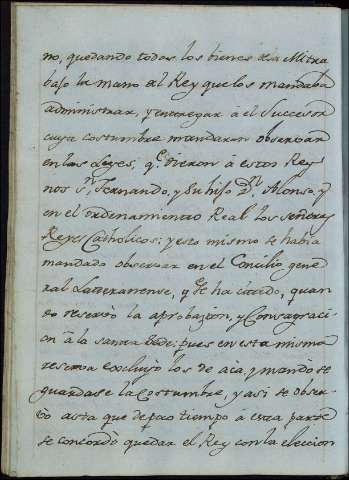 no, quedando todos los bienes dela Mitra
bajo la mano al Rey que los mandaba
administrar, y entregar â el Successor
cuya costumbre mandaron observar
en las Leyes, q.e dieron â estos Rey
nos s.n Fernando, y su hijo D.n Alonso, y
en el ordenamiento Real los señores
Reyes Catholicos: y esto mismo se habia
mandado observar en el Concilio gene
ral Lateranense, y se ha citado, quan
do reservò la aprobazion, y Consagraci
on â la santa Sede: pues en esta misma
reserva excluyò los de acà, y mandò se
guardase la Costumbre, y asi se obser
vò asta que de poco tiempo â esta parte
se concordò quedar el Rey con la eleccion